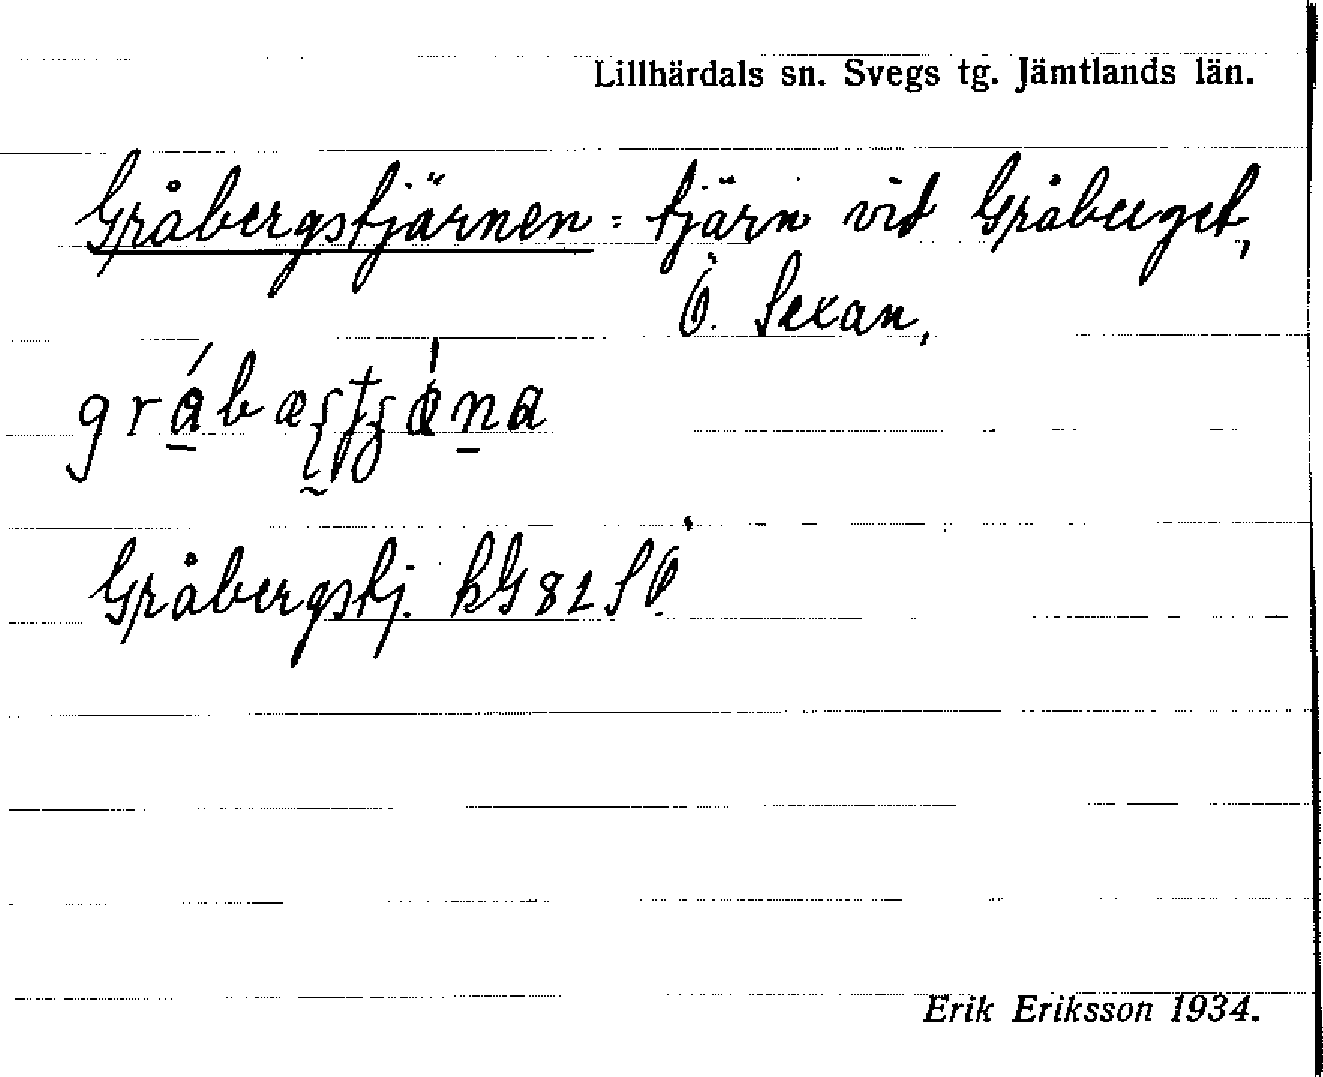 Lillhärdals sn. Svegs tg. Jämtlands län.
Gråbergstjärnen = tjärn vid Gråberget,
Ö. Sexan,
Gråbergstj. kG 82 SÖ
Erik Eriksson 1934.